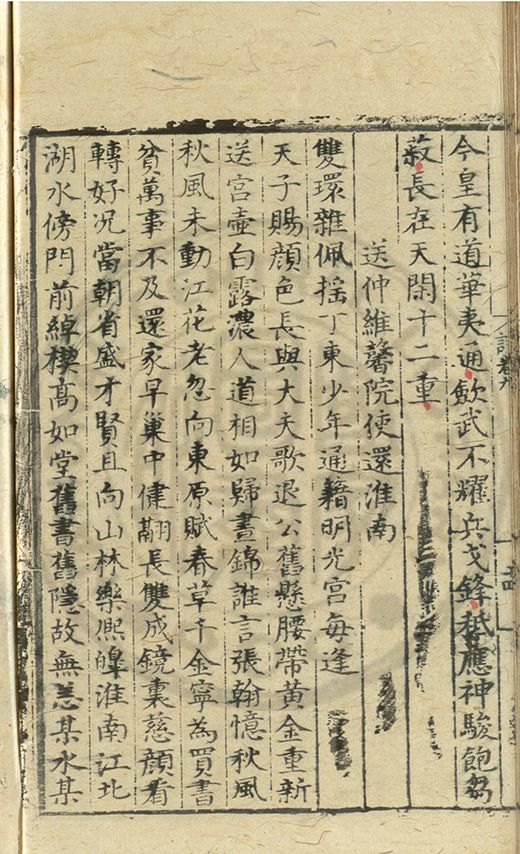 今皇有道華夷通歛武不耀兵戈鋒秪應神駿飽芻
菽長在天閑十二重
送仲維馨院使還淮南
雙環雜佩揺丁東少年通籍明光宮每逢
天子賜顔色長與大夫歌退公舊懸腰帶黃金重新
送宮壷白露濃人道相如歸晝錦誰言張翰憶秋風
秋風未動江花老忽向東原賦春草千金寧為買書
貧萬事不及還家早巢中健翮長雙成鏡裏慈顔看
轉好况當朝省盛才賢且向山林樂熙皥淮南江北
湖水傍門前綽楔髙如堂舊書舊隠故無恙某水某